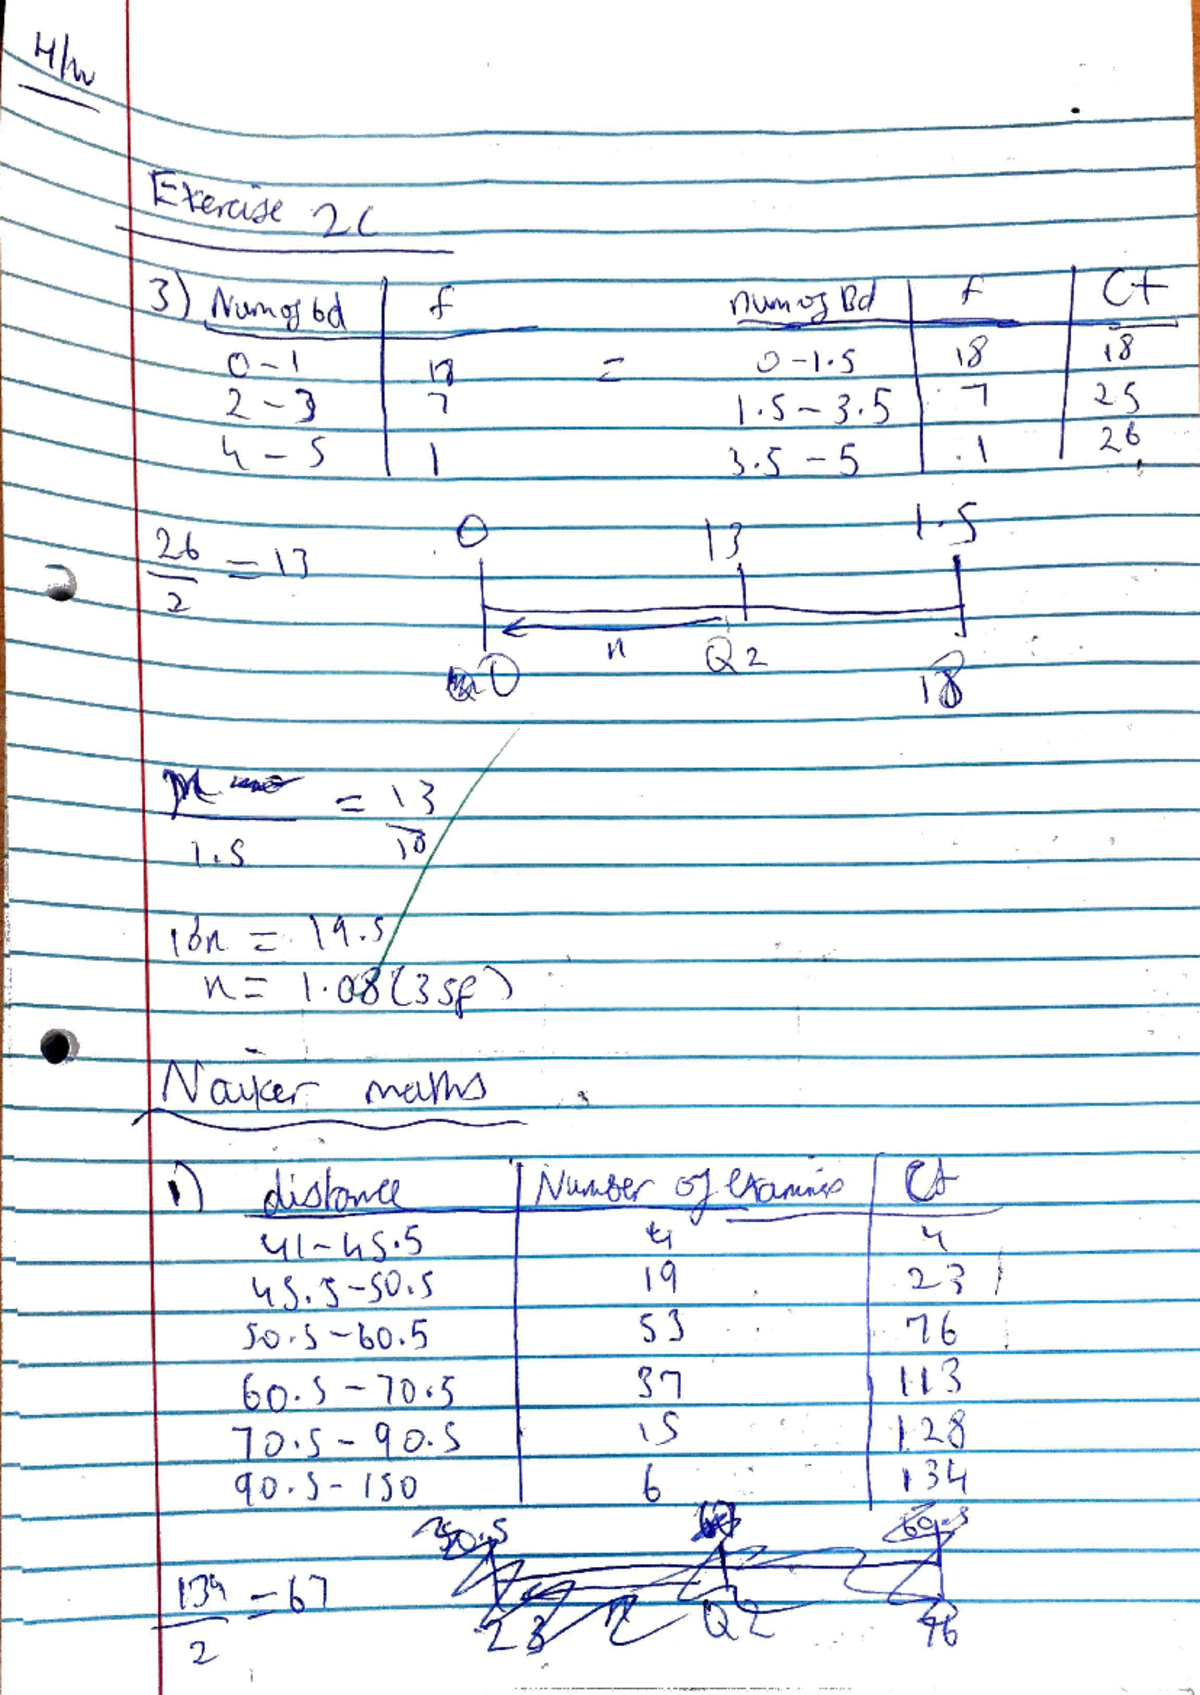 H/W
Exercise 2C
3) Num of bd f num of Bd f Cf
0-1 18 = 0-1.5 18 18
2-3 7 1.5-3.5 7 25
4-5 1 3.5-5 1 26
0 13 1.5
26/2 = 13
n Q2
0 18
/1.5 = 13/18
18n = 19.5
n = 1.08 (3sf)
Naiker maths
1) distance Number of examiners Cf
41-45.5 4 4
45.5-50.5 19 23
50.5-60.5 53 76
60.5-70.5 37 113
70.5-90.5 15 128
90.5-150 6 134
50.5 60.5
134/2 = 67
23 n Q2 76